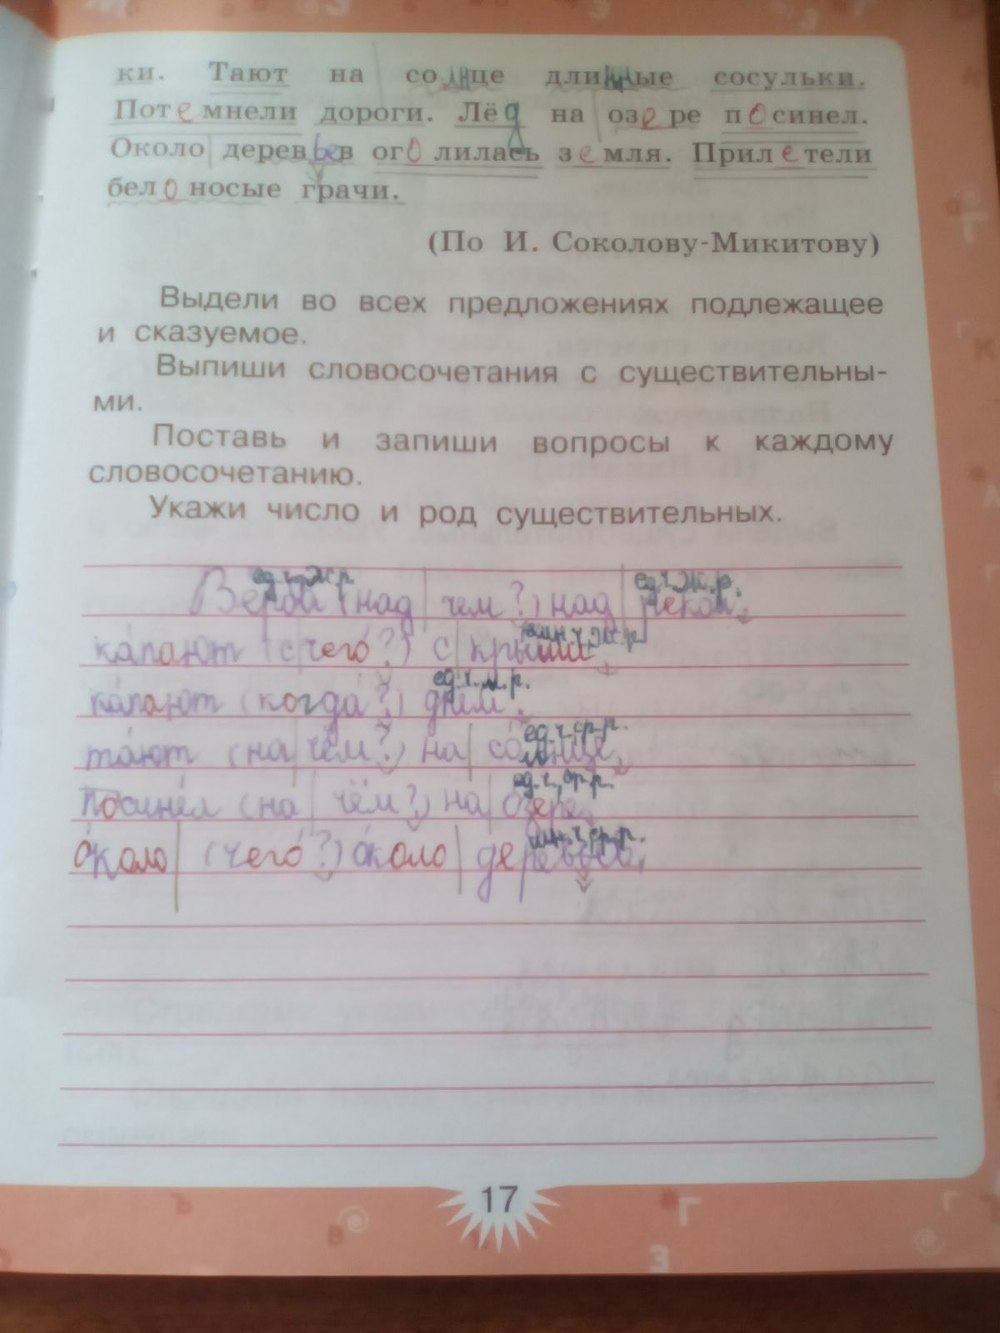 ки. Тают на солнце длинные сосульки.
Потемнели дороги. Лёд на озере посинел.
Около деревьев оголилась земля. Прилетели
белоносые грачи.
(По И. Соколову-Микитову)
Выдели во всех предложениях подлежащее
и сказуемое.
Выпиши словосочетания с существительны-
ми.
Поставь и запиши вопросы к каждому
словосочетанию.
Укажи число и род существительных.
ед.ч. ж.р. ед.ч. ж.р.
Верба (над чем?) над рекой,
мн.ч. ж.р.
капают (с чего?) с крыши,
ед.ч. м.р.
капают (когда?) днём,
ед.ч. ср.р.
тают (на чём?) на солнце,
ед.ч. ср.р.
посинел (на чём?) на озере,
мн.ч. ср.р.
около (чего?) около деревьев,
17